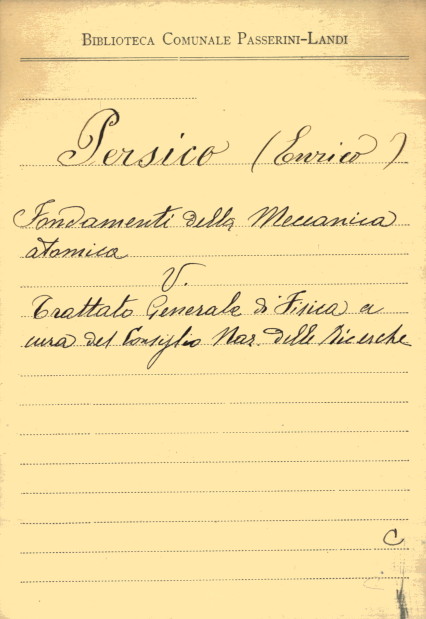 BIBLIOTECA COMUNALE PASSERINI-LANDI
Persico (Enrico)
Fondamenti della Meccanica
atomica
V.
Trattato Generale di Fisica a
cura del Consiglio Naz. delle Ricerche
C